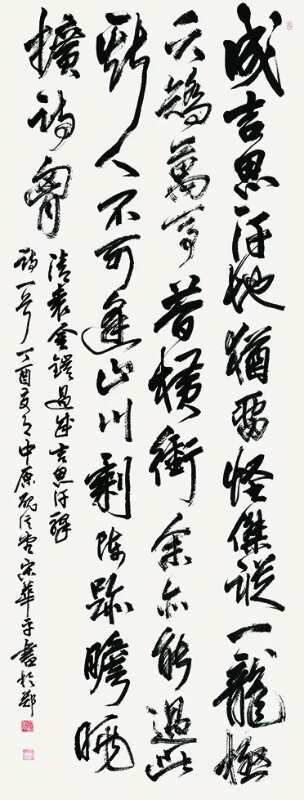 成吉思汗地猶留怪傑蹤一龍極
夭矯萬馬昔橫衝余亦能過此
斯人不可逢山川剩陳跡瞻眺
擴詩胸
清袁金鎧過成吉思汗驛
詩一首丁酉夏日中原宋華平書於鄭